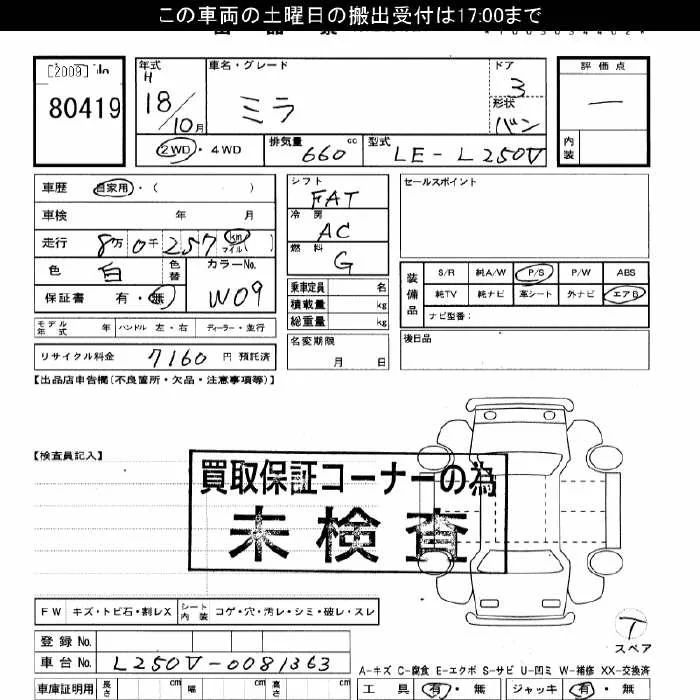 この車両の土曜日の搬出受付は17:00まで
[2009]
80419
年式 H 18/10月
車名・グレード ミラ
ドア 3
形状 バン
評価点 ー
内装
2WD・4WD
排気量 660cc
型式 LE-L250V
車歴 自家用・( )
車検 年 月
走行 8万0千257 km マイル( )
色 白 色替 カラーNo. W09
保証書 有・無
モデル年式 年 ハンドル 左・右 ディーラー・並行
リサイクル料金 7160 円 預託済
シフト FAT
冷房 AC
燃料 G
乗車定員 名
積載量 kg
総重量 kg
名変期限 月 日
セールスポイント
装備品
S/R 純A/W P/S P/W ABS
純TV 純ナビ 革シート 外ナビ エアB
ナビ型番:
後日品
【出品店申告欄(不良箇所・欠品・注意事項等)】
【検査員記入】
買取保証コーナーの為
未検査
FW キズ・トビ石・割レX シート内装 コゲ・穴・汚レ・シミ・破レ・スレ
T
スペア
登録No.
車台No. L250V-0081363
A-キズ C-腐食 E-エクボ S-サビ U-凹ミ W-補修 XX-交換済
車庫証明用 長さ cm 幅 cm 高さ cm
工具 有・無 ジャッキ 有・無